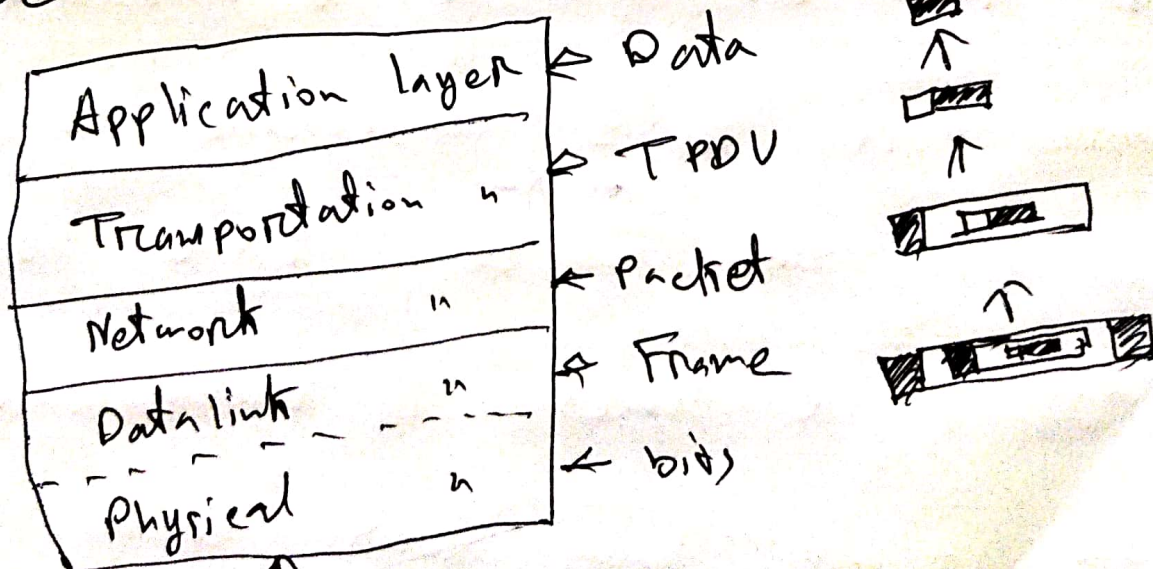 Application layer
Data
Transportation "
TPDU
Network "
Packet
Datalink "
Frame
Physical "
bits